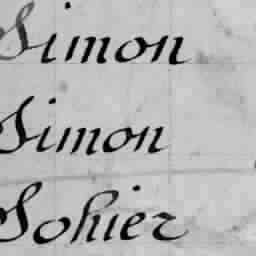 Simon
Simon
Sohier